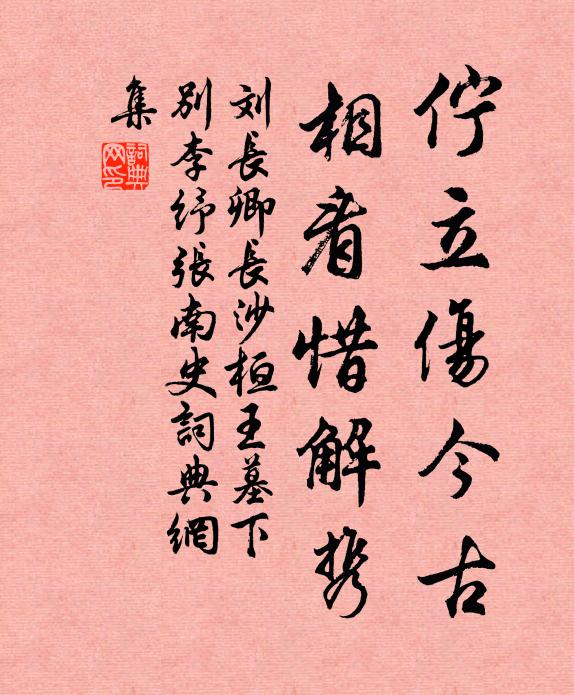 佇立傷今古
相看惜解携
刘長卿長沙桓王墓下
別李纾張南史詞典網
集
詞典
网印